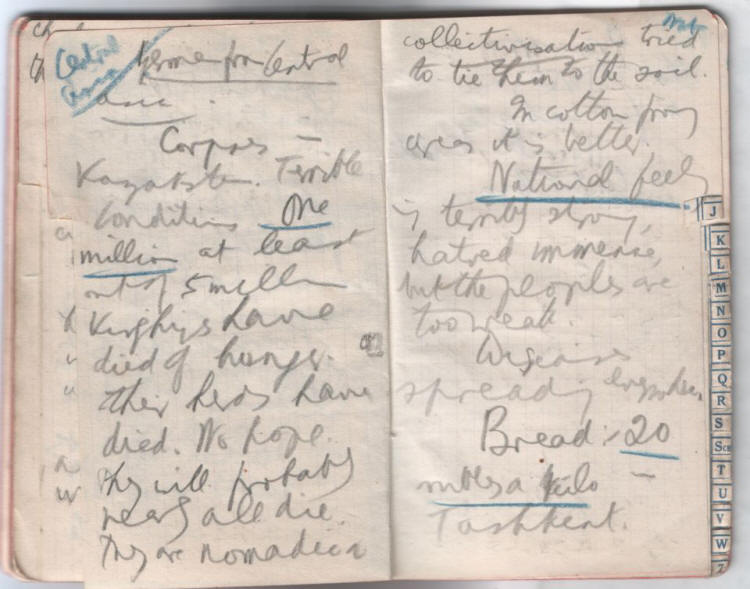 Central
Asia
home from Central
Asia.
Corpses –
Kazakstan. Terrible
Conditions One
million at least
out of 5 million
Kirghiz have
died of hunger.
their herds have
died. No hope.
They will probably
nearly all die.
They are nomadic &
collectivisation tried
to tie them to the soil.
In cotton
areas it is better.
National feeling
is terribly strong,
hatred immense,
but the peoples are
too weak.
Diseases
spreading everywhere.
Bread :- 20
roubles a kilo –
Tashkent.
J
K
L
M
N
O
P
Q
R
S
Sch
T
U
V
W
Z